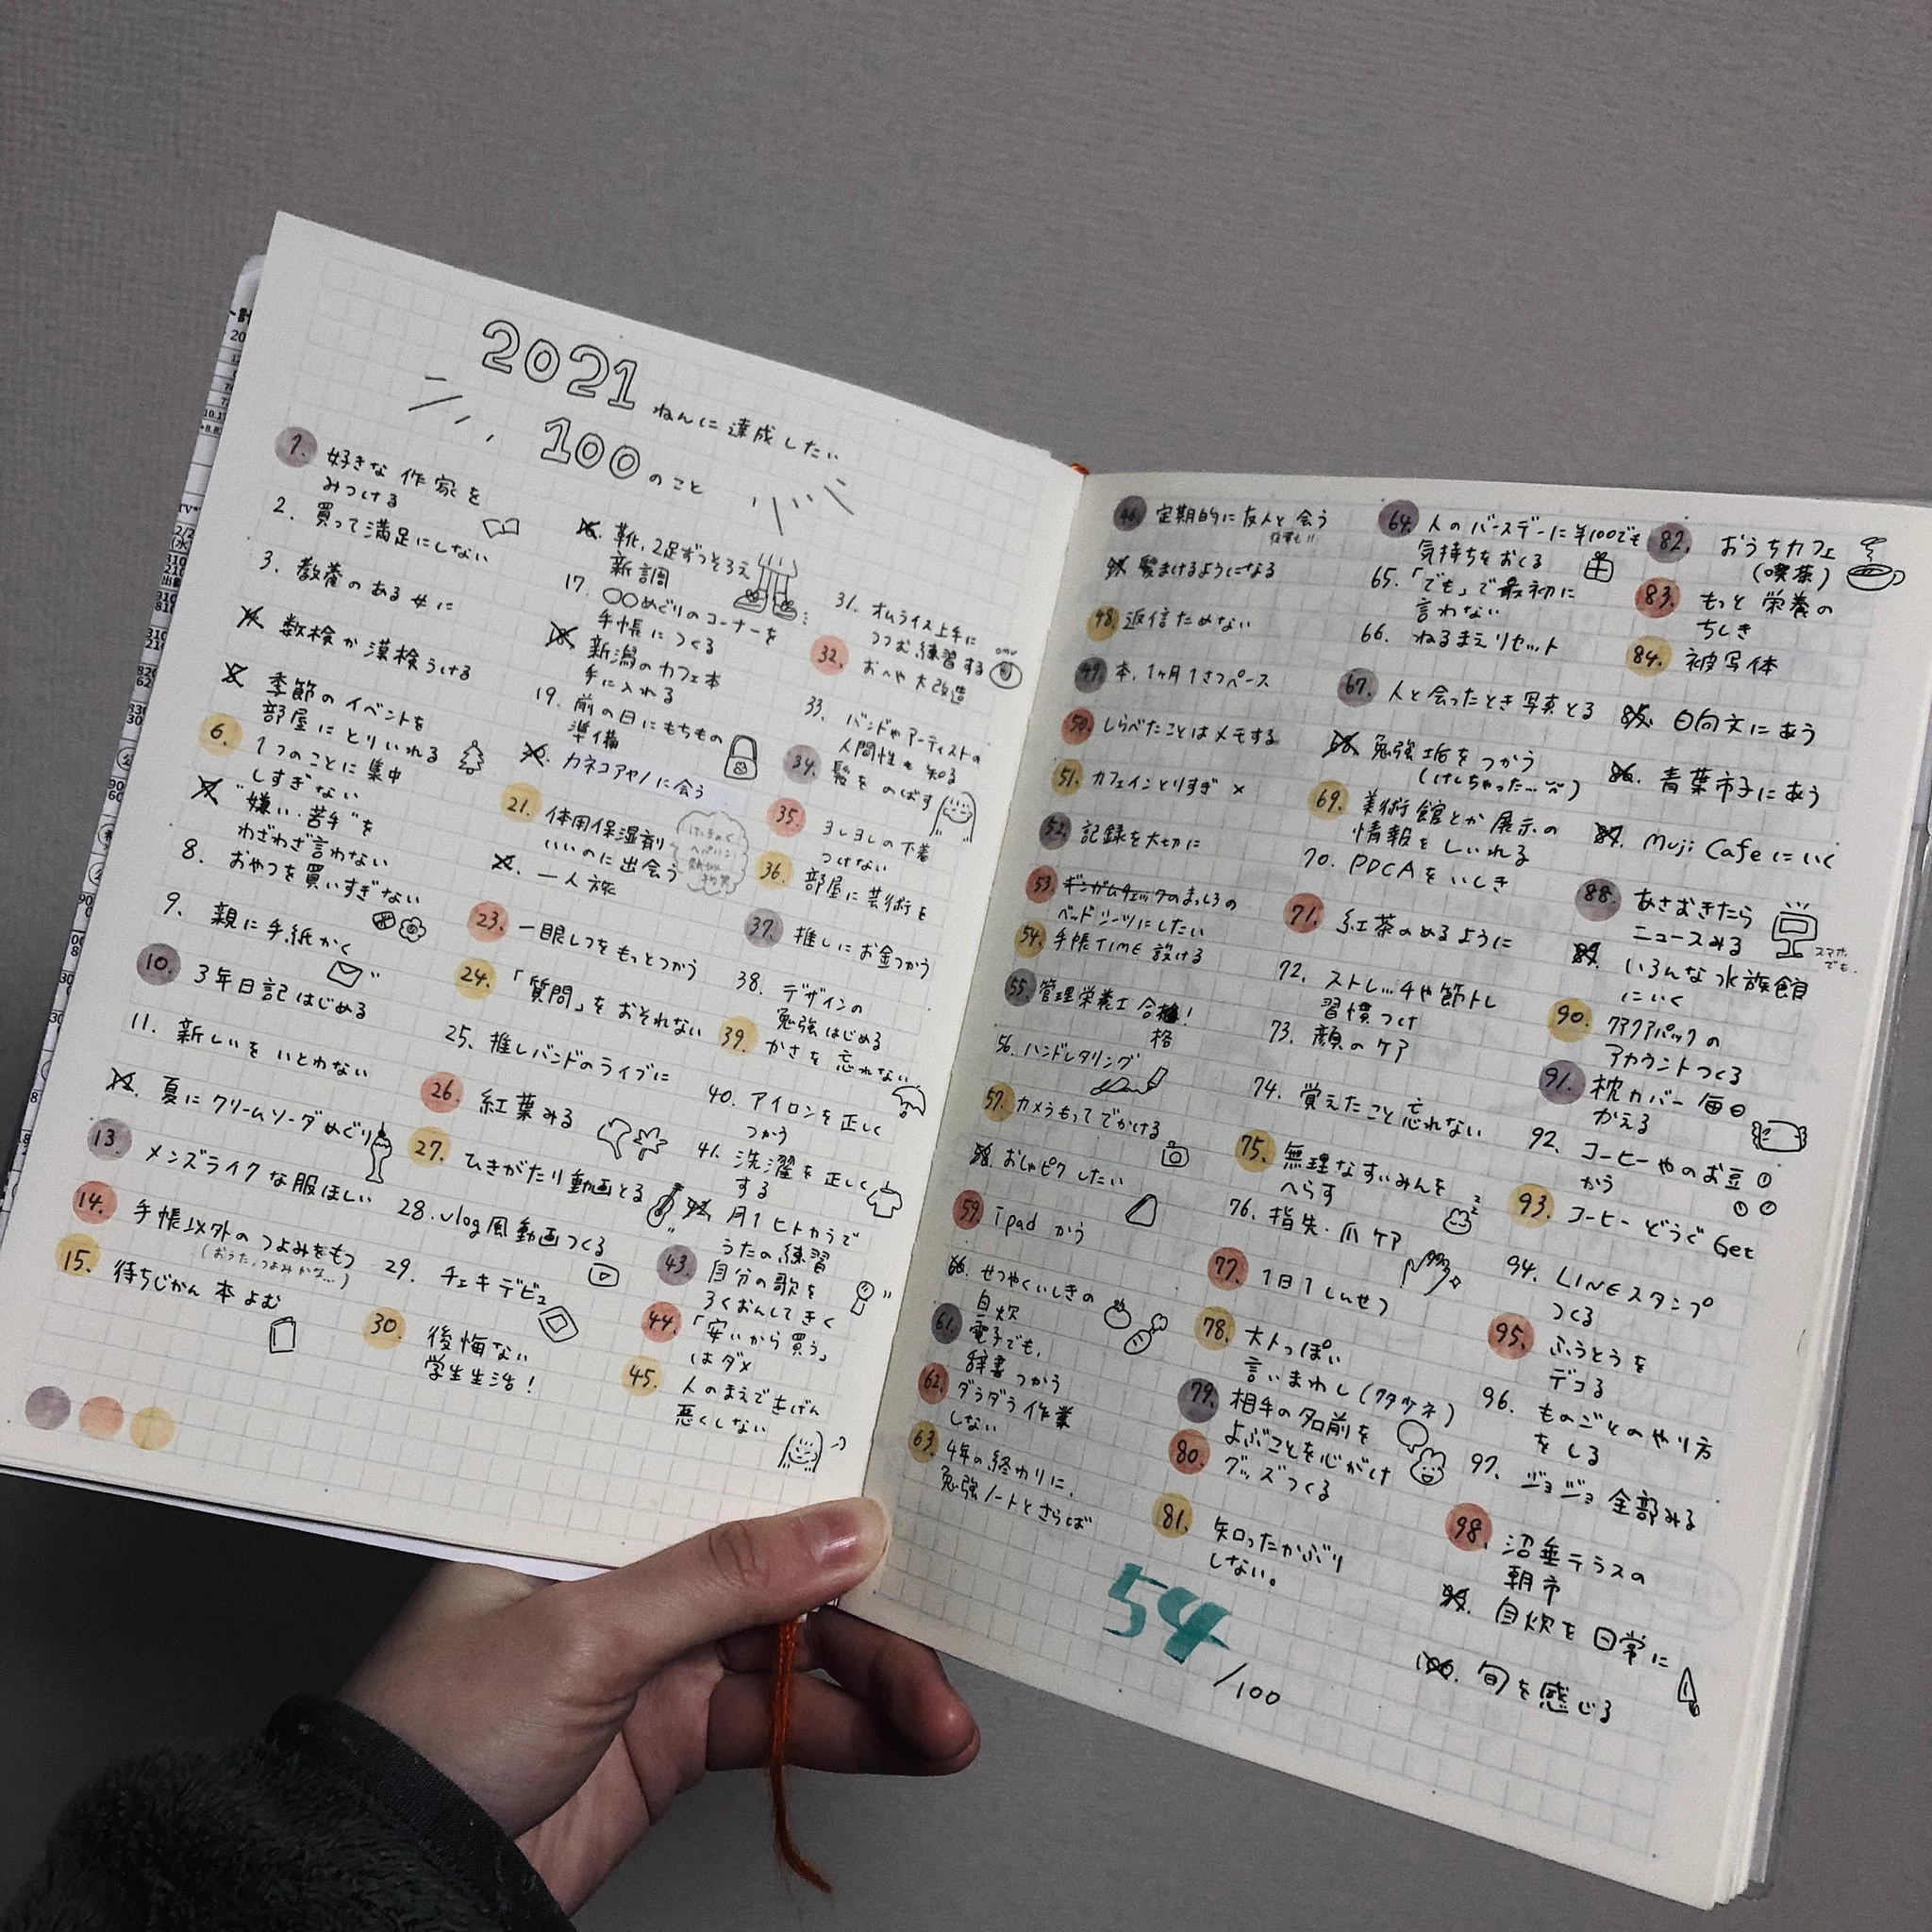 2021 ねんに達成したい
100 のこと
1. 好きな作家を
みつける
2. 買って満足にしない
3. 教養のある女に
4. 数検か漢検うける
5. 季節のイベントを
部屋にとりいれる
6. 1つのことに集中
しすぎない
7. "嫌い・苦手"を
わざわざ言わない
8. おやつを買いすぎない
9. 親に手紙かく
10. 3年日記はじめる
11. 新しいをいとわない
12. 夏にクリームソーダめぐり
13. メンズライクな服ほしい
14. 手帳以外のつよみをもつ
(おうた、つよみかな…)
15. 待ちじかん本よむ
16. 靴、2足ずつそろえ
新調
17. ○○めぐりのコーナーを
手帳につくる
18. 新潟のカフェ本
手に入れる
19. 前の日にもちもの
準備
20. カネコアヤノに会う
21. 体用保湿剤
いいのに出会う
22. 一人旅
23. 一眼レフをもっとつかう
24. 「質問」をおそれない
25. 推しバンドのライブに
26. 紅葉みる
27. ひきがたり動画とる
28. vlog風動画つくる
29. チェキデビュ
30. 後悔ない
学生生活!
31. オムライス上手に
つつむ練習する
omu
32. おへや大改造
33. バンドやアーティストの
人間性も知る
34. 髪をのばす
35. ヨレヨレの下着
つけない
36. 部屋に芸術を
37. 推しにお金つかう
38. デザインの
勉強はじめる
39. かさを忘れない
40. アイロンを正しく
つかう
41. 洗濯を正しく
する
42. 月1ヒトカラで
うたの練習
43. 自分の歌を
ろくおんしてきく
44. 「安いから買う」
はダメ
45. 人のまえできげん
悪くしない
46. 定期的に友人と会う
47. 髪まけるようになる
48. 返信ためない
49. 本、1ヶ月1さつペース
50. しらべたことはメモする
51. カフェインとりすぎ×
52. 記録を大切に
53. ギンガムチェックのまっしろの
ベッドシーツにしたい
54. 手帳TIME設ける
55. 管理栄養士合格!
格
56. ハンドレタリング
57. カメラもってでかける
58. おしゃピクしたい
59. ipadかう
60. せつやくいしきの
自炊
61. 電子でも、
辞書つかう
62. ダラダラ作業
しない
63. 4年の終わりに、
勉強ノートとさらば
64. 人のバースデーに¥100でも
気持ちをおくる
65. 「でも」で最初に
言わない
66. ねるまえリセット
67. 人と会ったとき写真とる
68. 勉強垢をつかう
(けしちゃった…)
69. 美術館とか展示の
情報をしいれる
70. PDCAをいしき
71. 紅茶のめるように
72. ストレッチや筋トレ
習慣つけ
73. 顔のケア
74. 覚えたこと忘れない
75. 無理なすいみんを
へらす
76. 指先・爪ケア
77. 1日1しんせつ
78. 大人っぽい
言いまわし(ワタクシネ)
79. 相手の名前を
よぶことを心がけ
80. グッズつくる
81. 知ったかぶり
しない。
82. おうちカフェ
(喫茶)
83. もっと栄養の
ちしき
84. 被写体
85. 日向文にあう
86. 青葉市子にあう
87. Muji Cafeにいく
88. あさおきたら
ニュースみる
スマホ
でも。
89. いろんな水族館
にいく
90. アクアパックの
アカウントつくる
91. 枕カバー毎日
かえる
92. コーヒーやのお豆
かう
93. コーヒーどうぐGet
94. LINEスタンプ
つくる
95. ふうとうを
デコる
96. ものごとのやり方
をしる
97. ジョジョ全部みる
98. 沼垂テラスの
朝市
99. 自炊を日常に
100. 旬を感じる
54/100